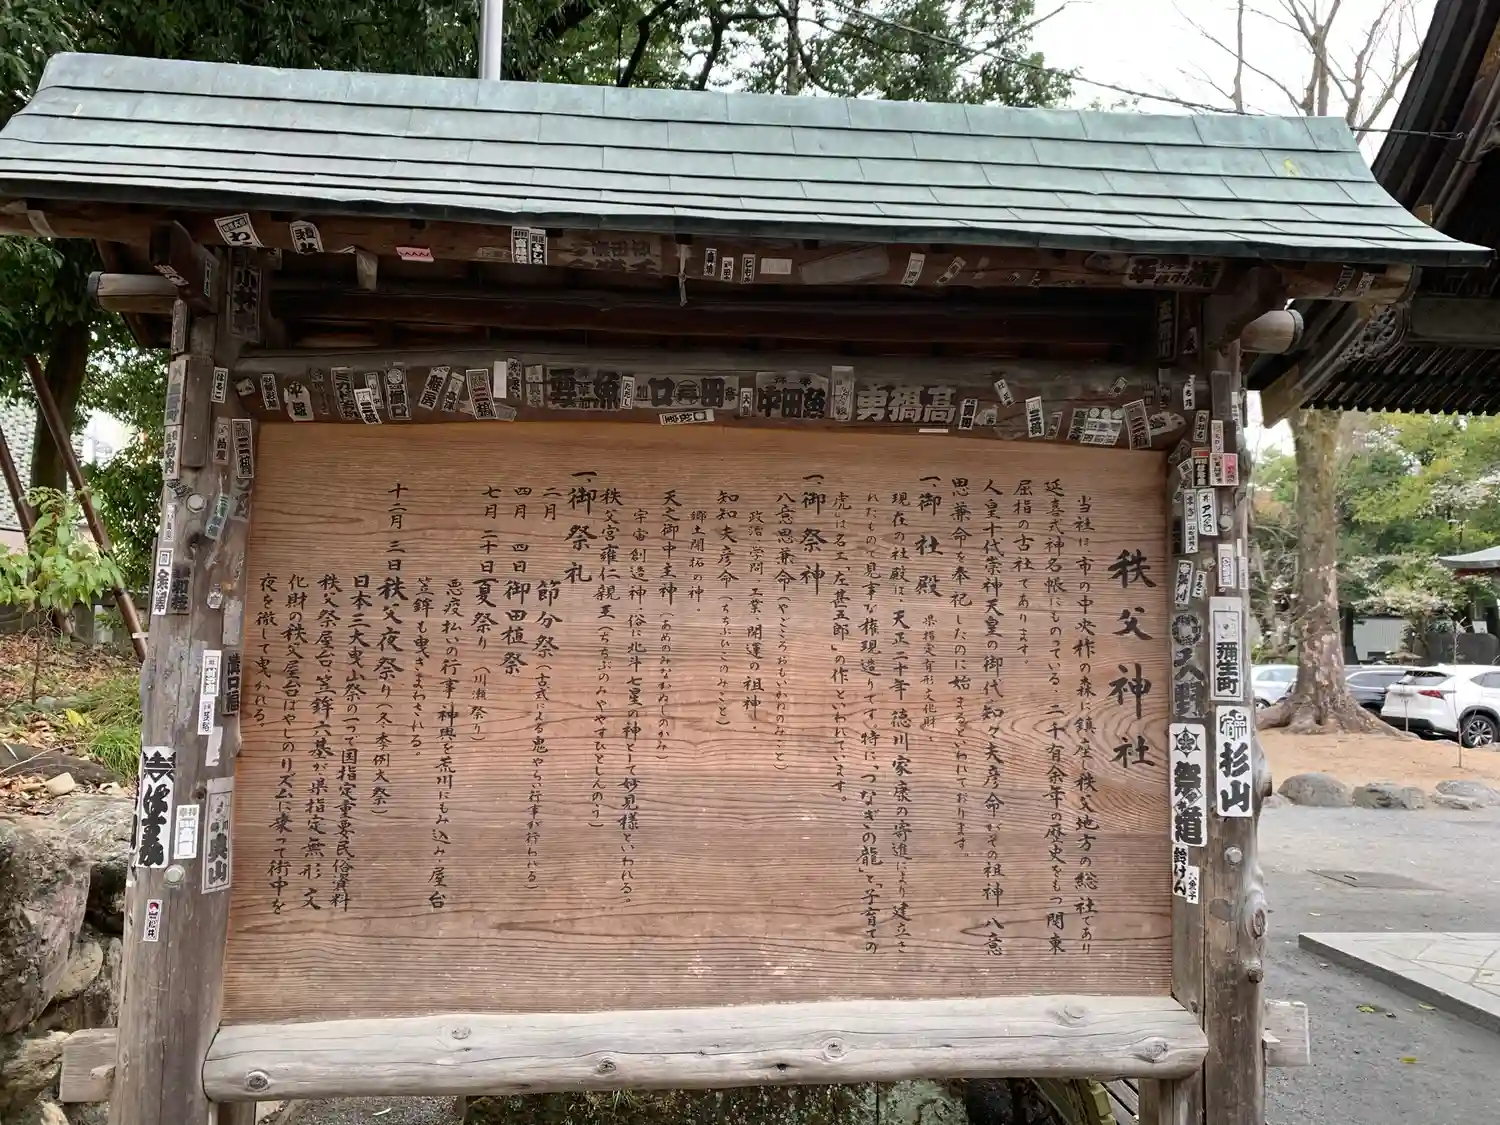 秩父神社
当社は、市の中央柞の森に鎮座、秩父地方の総社であり
延喜式神名帳にものっている、二千有余年の歴史をもつ関東
屈指の古社であります。
人皇十代崇神天皇の御代知々夫彦命がその祖神 八意
思兼命を奉祀したのに始まるといわれております。
一、御社殿 県指定有形文化財、
現在の社殿は、天正二十年、徳川家康の寄進により建立さ
れたもので見事な権現造りです。特に、「つなぎの龍」と「子育ての
虎」は名工「左甚五郎」の作といわれています。
一、御祭神
八意思兼命（やごころおもいかねのみこと）
政治、学問、工業、開運の祖神、
知知夫彦命（ちちぶひこのみこと）
郷土開拓の神、
天之御中主神（あめのみなかぬしのかみ）
宇宙創造神、俗に北斗七星の神として妙見様といわれる。
秩父宮雍仁親王（ちちぶのみややすひとしんのう）
一、御祭礼
二月 節分祭（古式による鬼やらい行事が行われる）
四月 四日 御田植祭
七月 二十日 夏祭り（川瀬祭り）
悪疫払いの行事、神輿を荒川にもみ込み、屋台
笠鉾も曳きまわされる。
十二月 三日 秩父夜祭り（冬季例大祭）
日本三大曳山祭の一つで国指定重要民俗資料
秩父祭屋台、笠鉾六基が、県指定無形文
化財の秩父屋台ばやしのリズムに乗って街中を
夜を徹して曳かれる。
高橋勇
杉山
彌生町